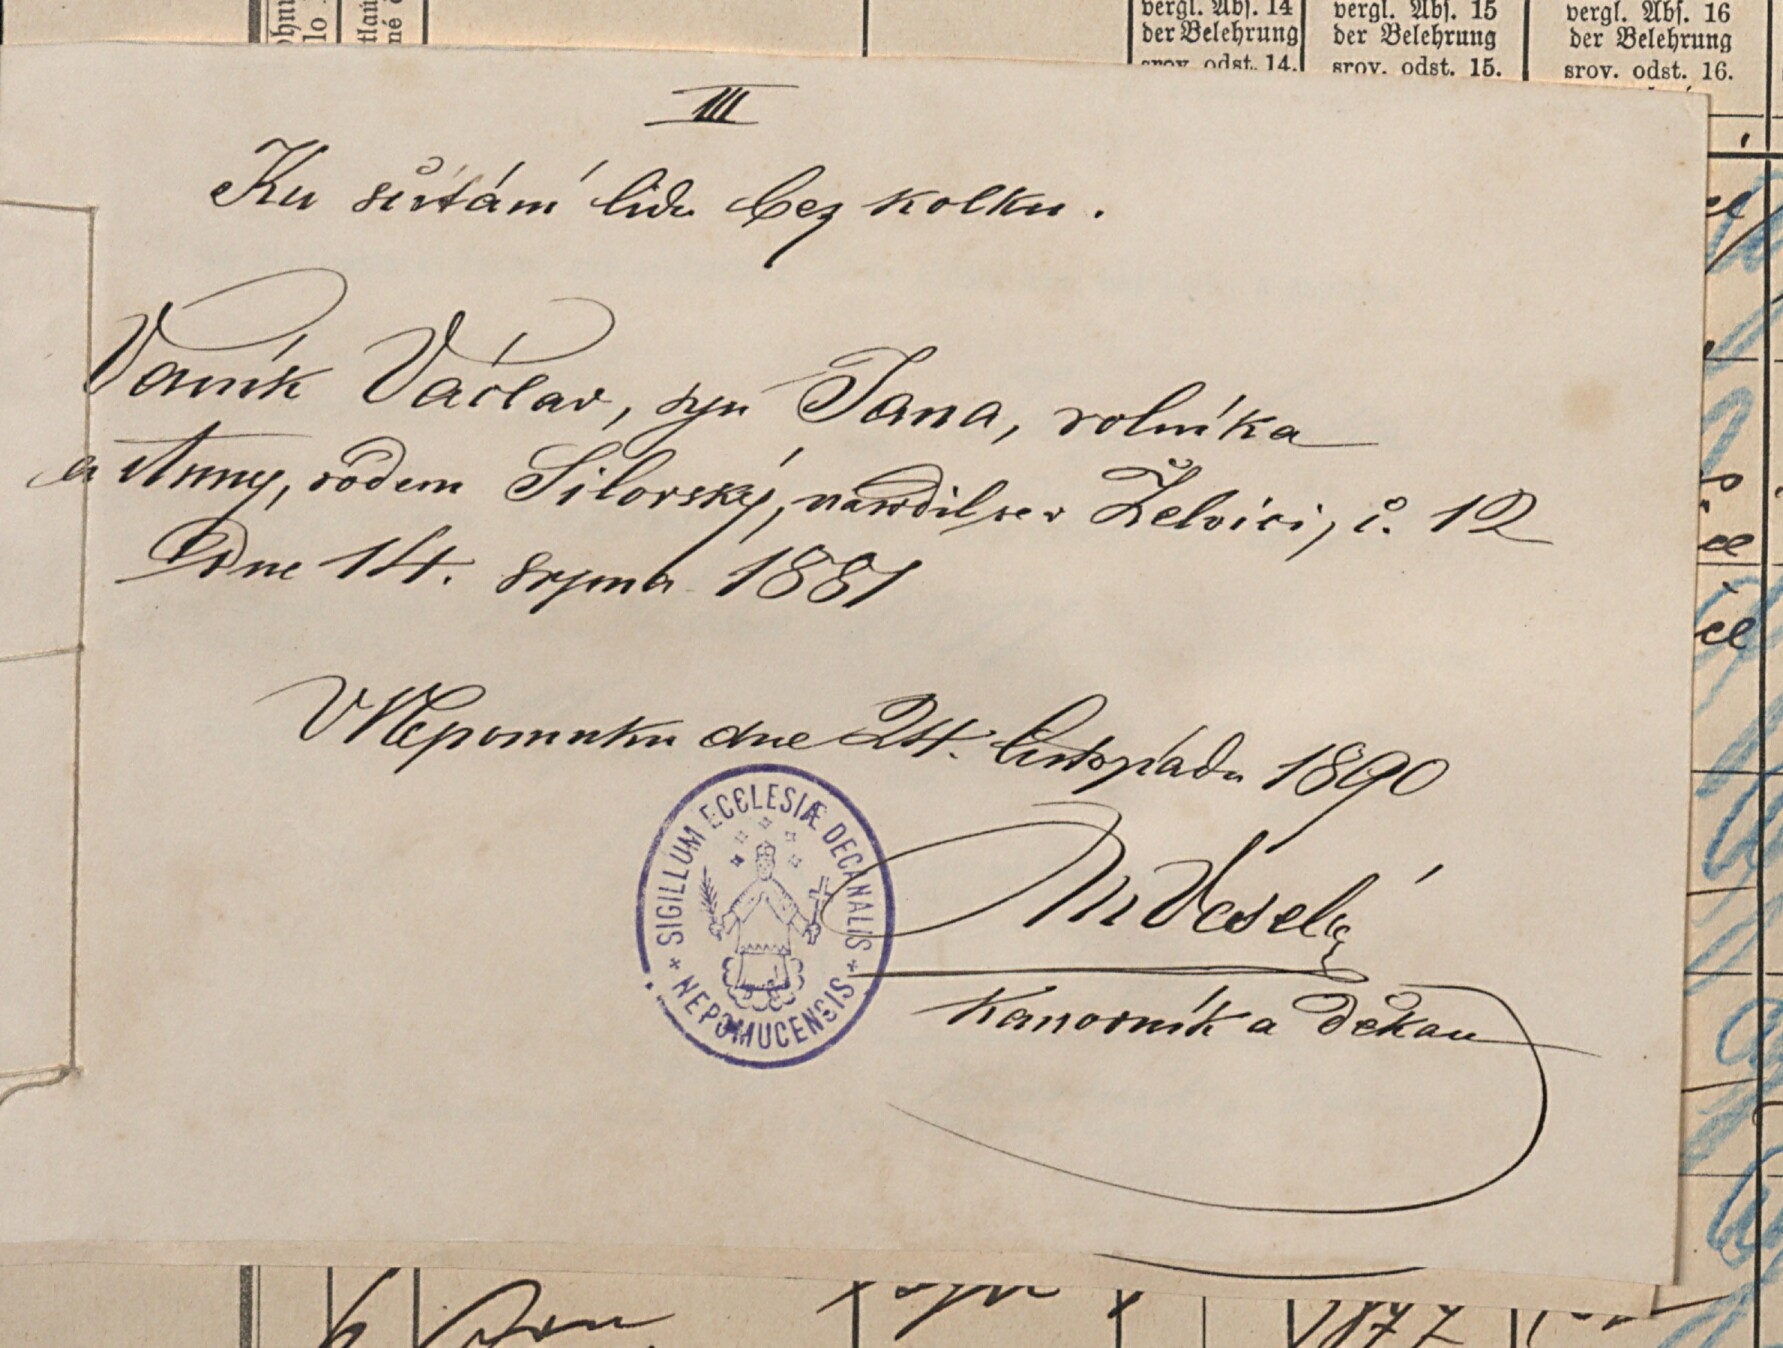 vergl. Abs. 14
der Belehrung
srov. odst. 14.
vergl. Abs. 15
der Belehrung
srov. odst. 15.
vergl. Abs. 16
der Belehrung
srov. odst. 16.
III
Ku sčítání lidu bez kolku.
Vaník Václav, syn Jana, rolníka
a Anny, rodem Silovský, narodil se v Želvici, č. 12
Dne 14. srpna 1881
V Nepomuku dne 24. listopadu 1890
SIGILLUM ECCLESIÆ DECANALIS
NEPOMUCENSIS
M Veselý
Kanovník a děkan
1877